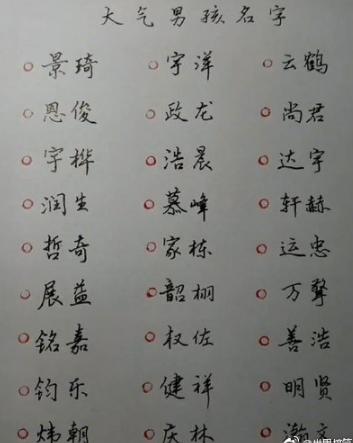 大气男孩名字
景琦 宇洋 云鹤
恩俊 政龙 尚君
宇桦 浩晨 达宇
润生 慕峰 轩赫
哲奇 家栋 运忠
展益 韶栩 万聱
铭嘉 权佐 善浩
钧乐 健祥 明贤
炜朝 庆林 瀚文